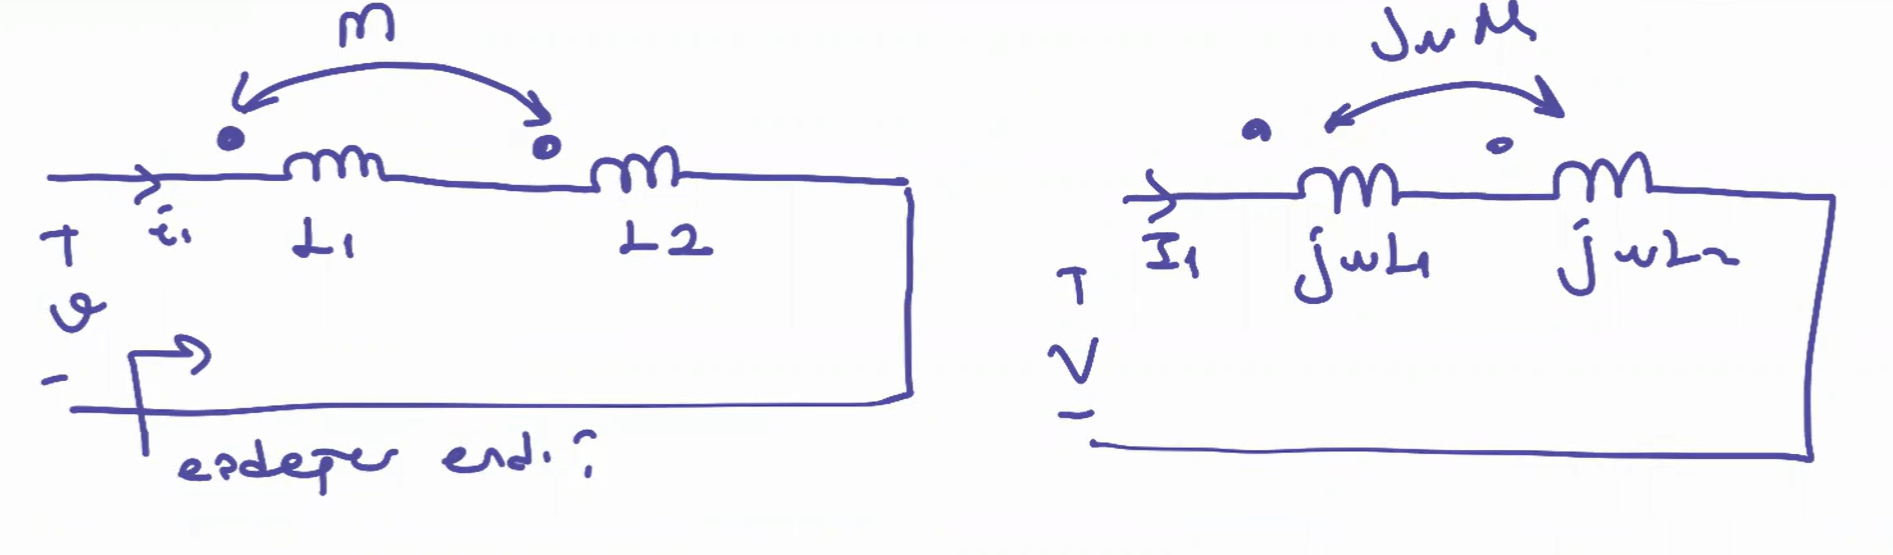 M
i₁ L1 L2
+
v
-
eşdeğer end. ?
jωM
I1 jωL1 jωL2
+
V
-